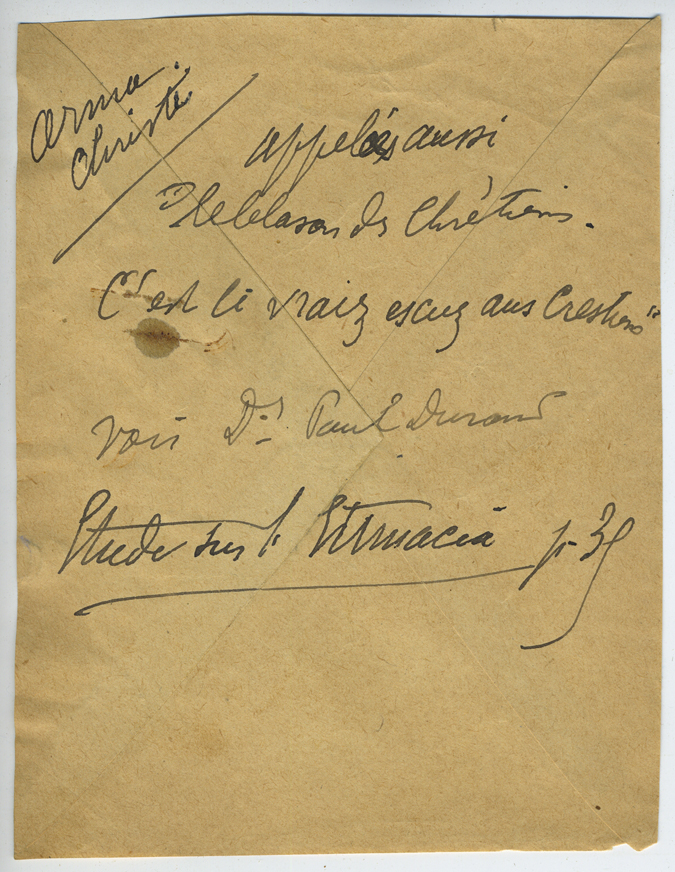 arma
Christi
appelés aussi
le blason des Chrétiens.
C'est li vraiz escuz aus Crestiens"
voir Dr Paul Durand
Etude sur l'Etimacia p. 39